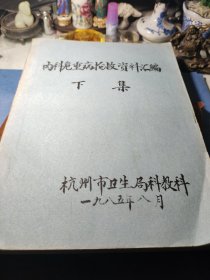 内科危重病抢救资料汇编
下集
杭州市卫生局科教科
一九八五年八月